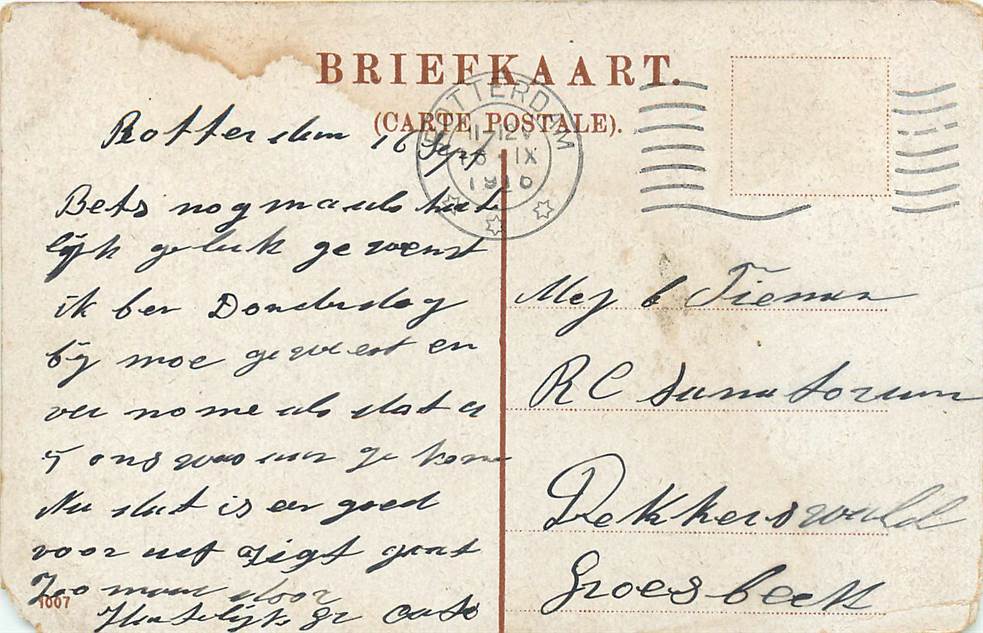 BRIEFKAART.
(CARTE POSTALE).
ROTTERDAM
11-12
16 IX
1916
Rotterdam 16 Sept
Bets nogmaals harte
lijk geluk gewenst
ik ben Donderdag
bij moe geweest en
ver nome als dat u
5 ons was aan gekome
Nu dat is een goed
voor uit zigt gaat
Zoo maar door
Hartelijke gr Cato
1007
Mej b Tieman
RC Sanatorium
Dekkerswald
Groesbeek